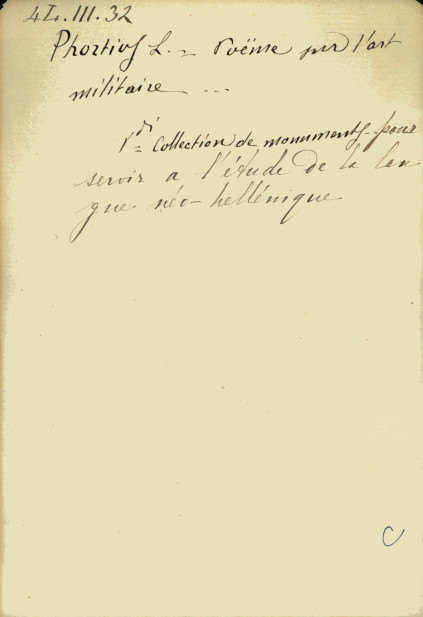 4L.III.32
Phortios L. = Poëme sur l'art
militaire ...
Vdi = Collection de monuments pour
servir a l'étude de la lan
gue néo-hellénique
C